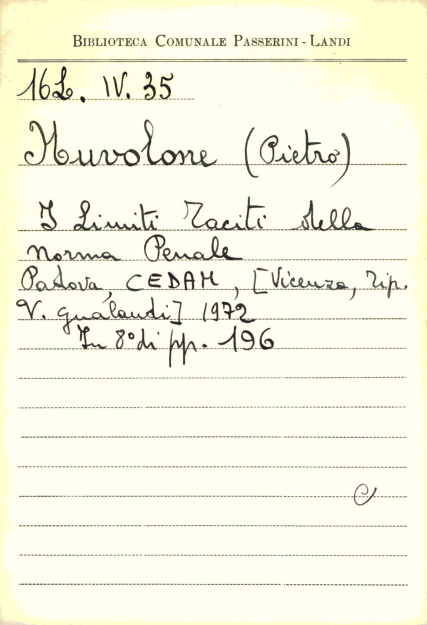 BIBLIOTECA COMUNALE PASSERINI - LANDI
16L. IV. 35
Nuvolone (Pietro)
I Limiti Taciti della
norma Penale
Padova, CEDAM, [Vicenza, Tip.
V. Gualandi] 1972
In 8° di pp. 196
C